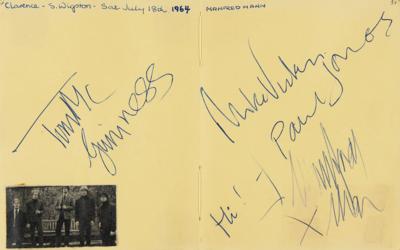 Clarence - S. Wigston - Sat July 18th 1964
MANFRED MANN
Tom Mc
Guinness
Mike Vickers
Paul Jones
Hi!
Manfred
x Mann